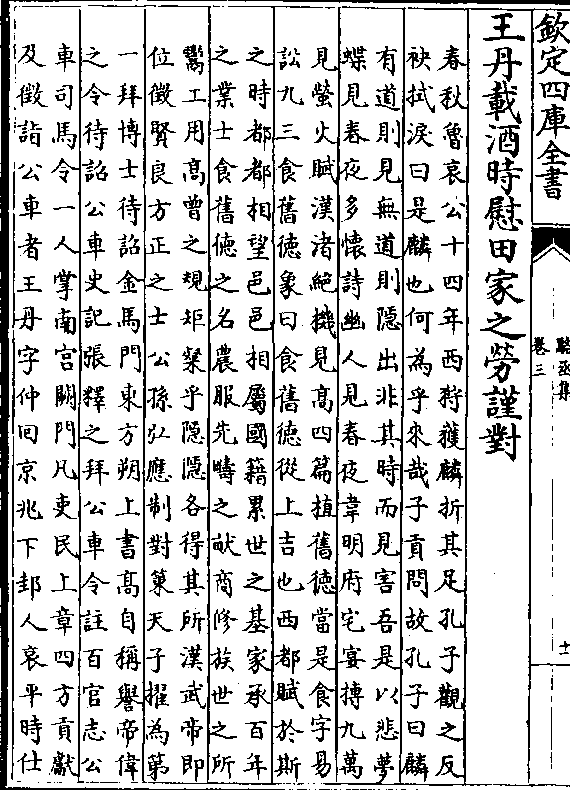 欽定四庫全書
駱丞集
卷三
十
王丹載酒時慰田家之勞謹對
春秋魯哀公十四年西狩獲麟折其足孔子觀之反
袂拭淚曰是麟也何為乎來哉子貢問故孔子曰麟
有道則見無道則隱出非其時而見害吾是以悲夢
蝶見春夜多懷詩幽人見春夜韋明府宅宴摶九萬
見螢火賦漢渚絕機見高四篇植舊德當是食字易
訟九三食舊德象曰食舊德從上吉也西都賦於斯
之時都都相望邑邑相屬國籍累世之基家承百年
之業士食舊德之名農服先疇之畝商修族世之所
鬻工用高曾之規矩粲乎隱隱各得其所漢武帝即
位徵賢良方正之士公孫弘應制對策天子擢為第
一拜博士待詔金馬門東方朔上書高自稱譽帝偉
之令待詔公車史記張釋之拜公車令註百官志公
車司馬令一人掌南宮闕門凡吏民上章四方貢獻
及徵詣公車者王丹字仲回京兆下邽人哀平時仕